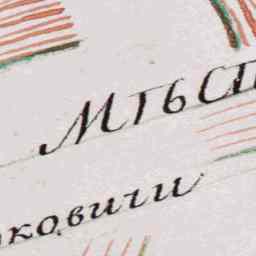 МѢСТ
ковичи